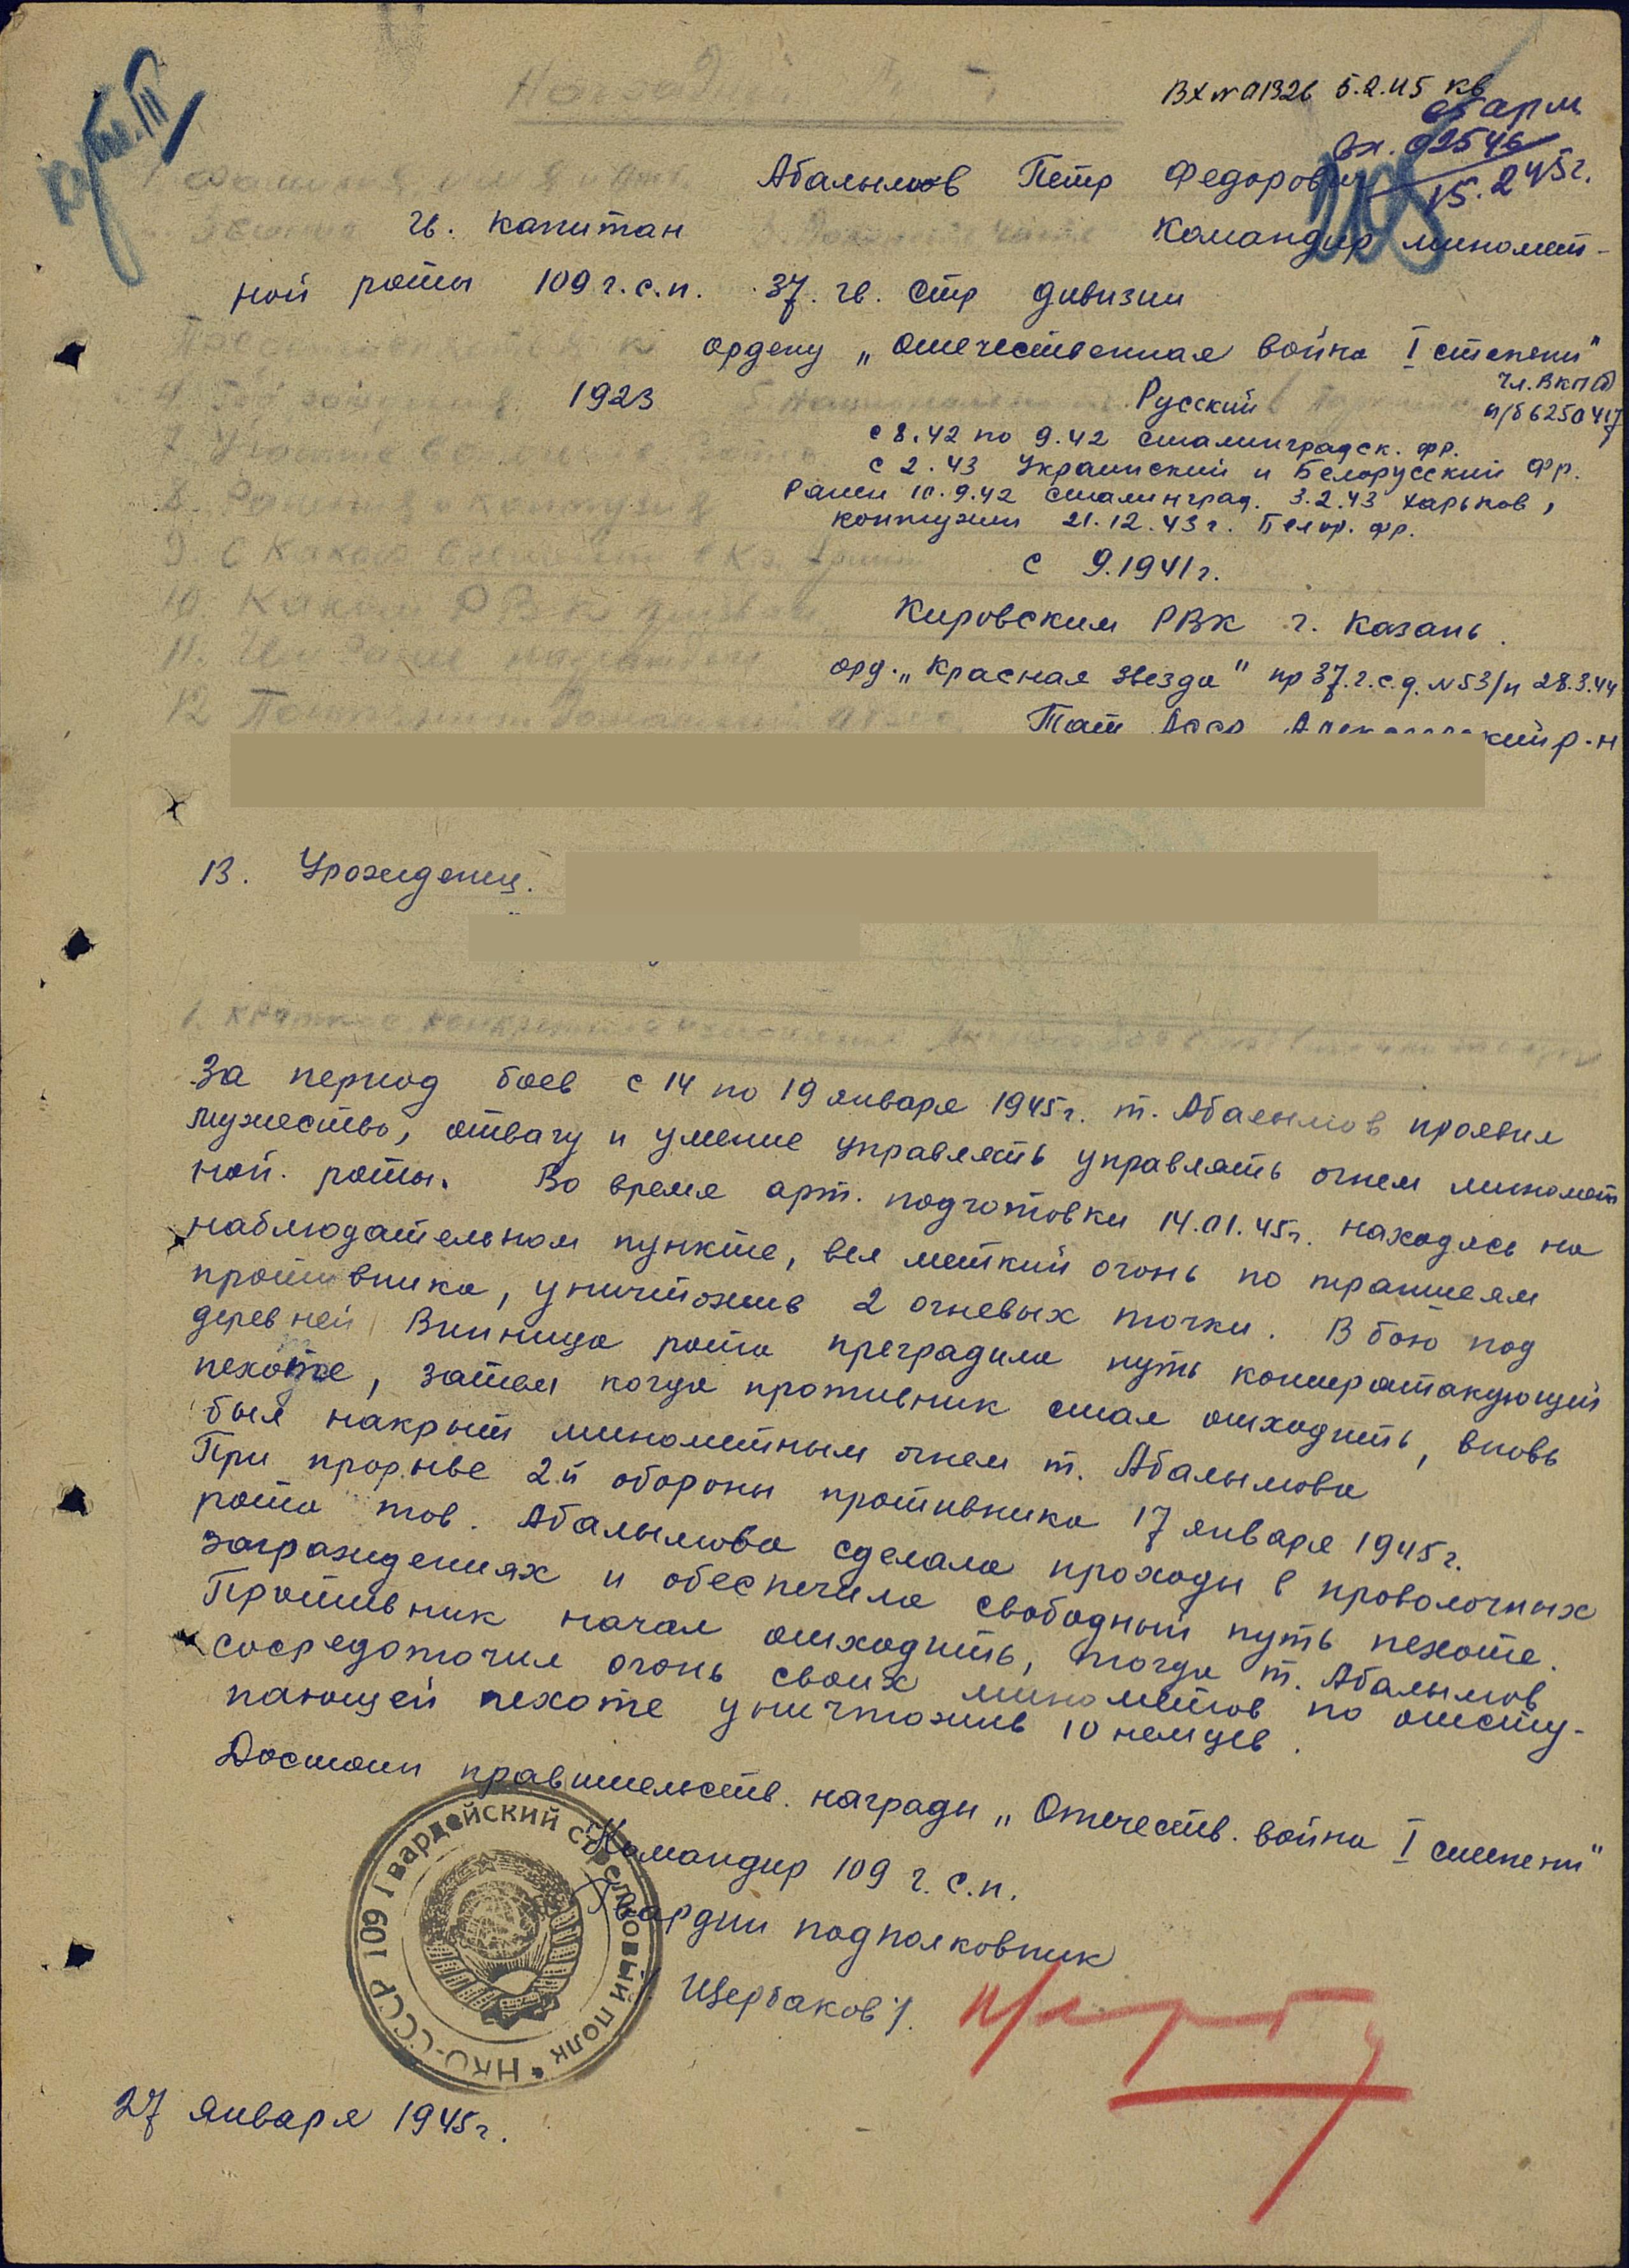 Вх № 01326 5.2.45 кв
вх. 02546
15.2.45г.
1. Фамилия, имя и отч. Абалымов Петр Федорович
2. Звание гв. капитан 3. Должность, часть Командир миномет-
ной роты 109 г.с.п. 37. гв. стр дивизии
Представляется к ордену „Отечественная война I степени"
4. Год рождения 1923 5. Национальность Русский 6. Партийность чл. ВКП(б)
п/б 6250417
7. Участие с 8.42 по 9.42 Сталинградск. фр.
с 2.43 Украинский и Белорусский фр.
8. Ранения и контузия Ранен 10.9.42 Сталинград. 3.2.43 Харьков,
контужен 21.12.43г. Белор. фр.
9. С какого времени в Кр. Армии с 9.1941г.
10. Каким РВК призван Кировским РВК г. Казань.
11. Чем ранее награжден орд. „Красная звезда" пр 37.г.с.д. №53/н 28.3.44
12. Постоянный домашний адрес Тат АССР р-н
13. Урожденец.
1. Краткое конкретное изложение
За период боев с 14 по 19 января 1945г. т. Абалымов проявил
мужество, отвагу и умение управлять управлять огнем миномет
ной. роты. Во время арт. подготовки 14.01.45г. находясь на
наблюдательном пункте, вел меткий огонь по траншеям
противника, уничтожив 2 огневых точки. В бою под
деревней Винница рота преградила путь контратакующей
пехоте, затем когда противник стал отходить, вновь
был накрыт минометным огнем т. Абалымова
При прорыве 2й обороны противника 17 января 1945г.
рота тов. Абалымова сделала проходы в проволочных
заграждениях и обеспечила свободный путь пехоте.
Противник начал отходить, тогда т. Абалымов
сосредоточил огонь своих минометов по отсту-
пающей пехоте уничтожив 10 немцев.
Достоин правительств. награды „Отечеств. война I степени"
Командир 109 г.с.п.
Гвардии подполковник
/Щербаков/.
НКО-СССР 109 Гвардейский стрелковый полк
27 января 1945г.